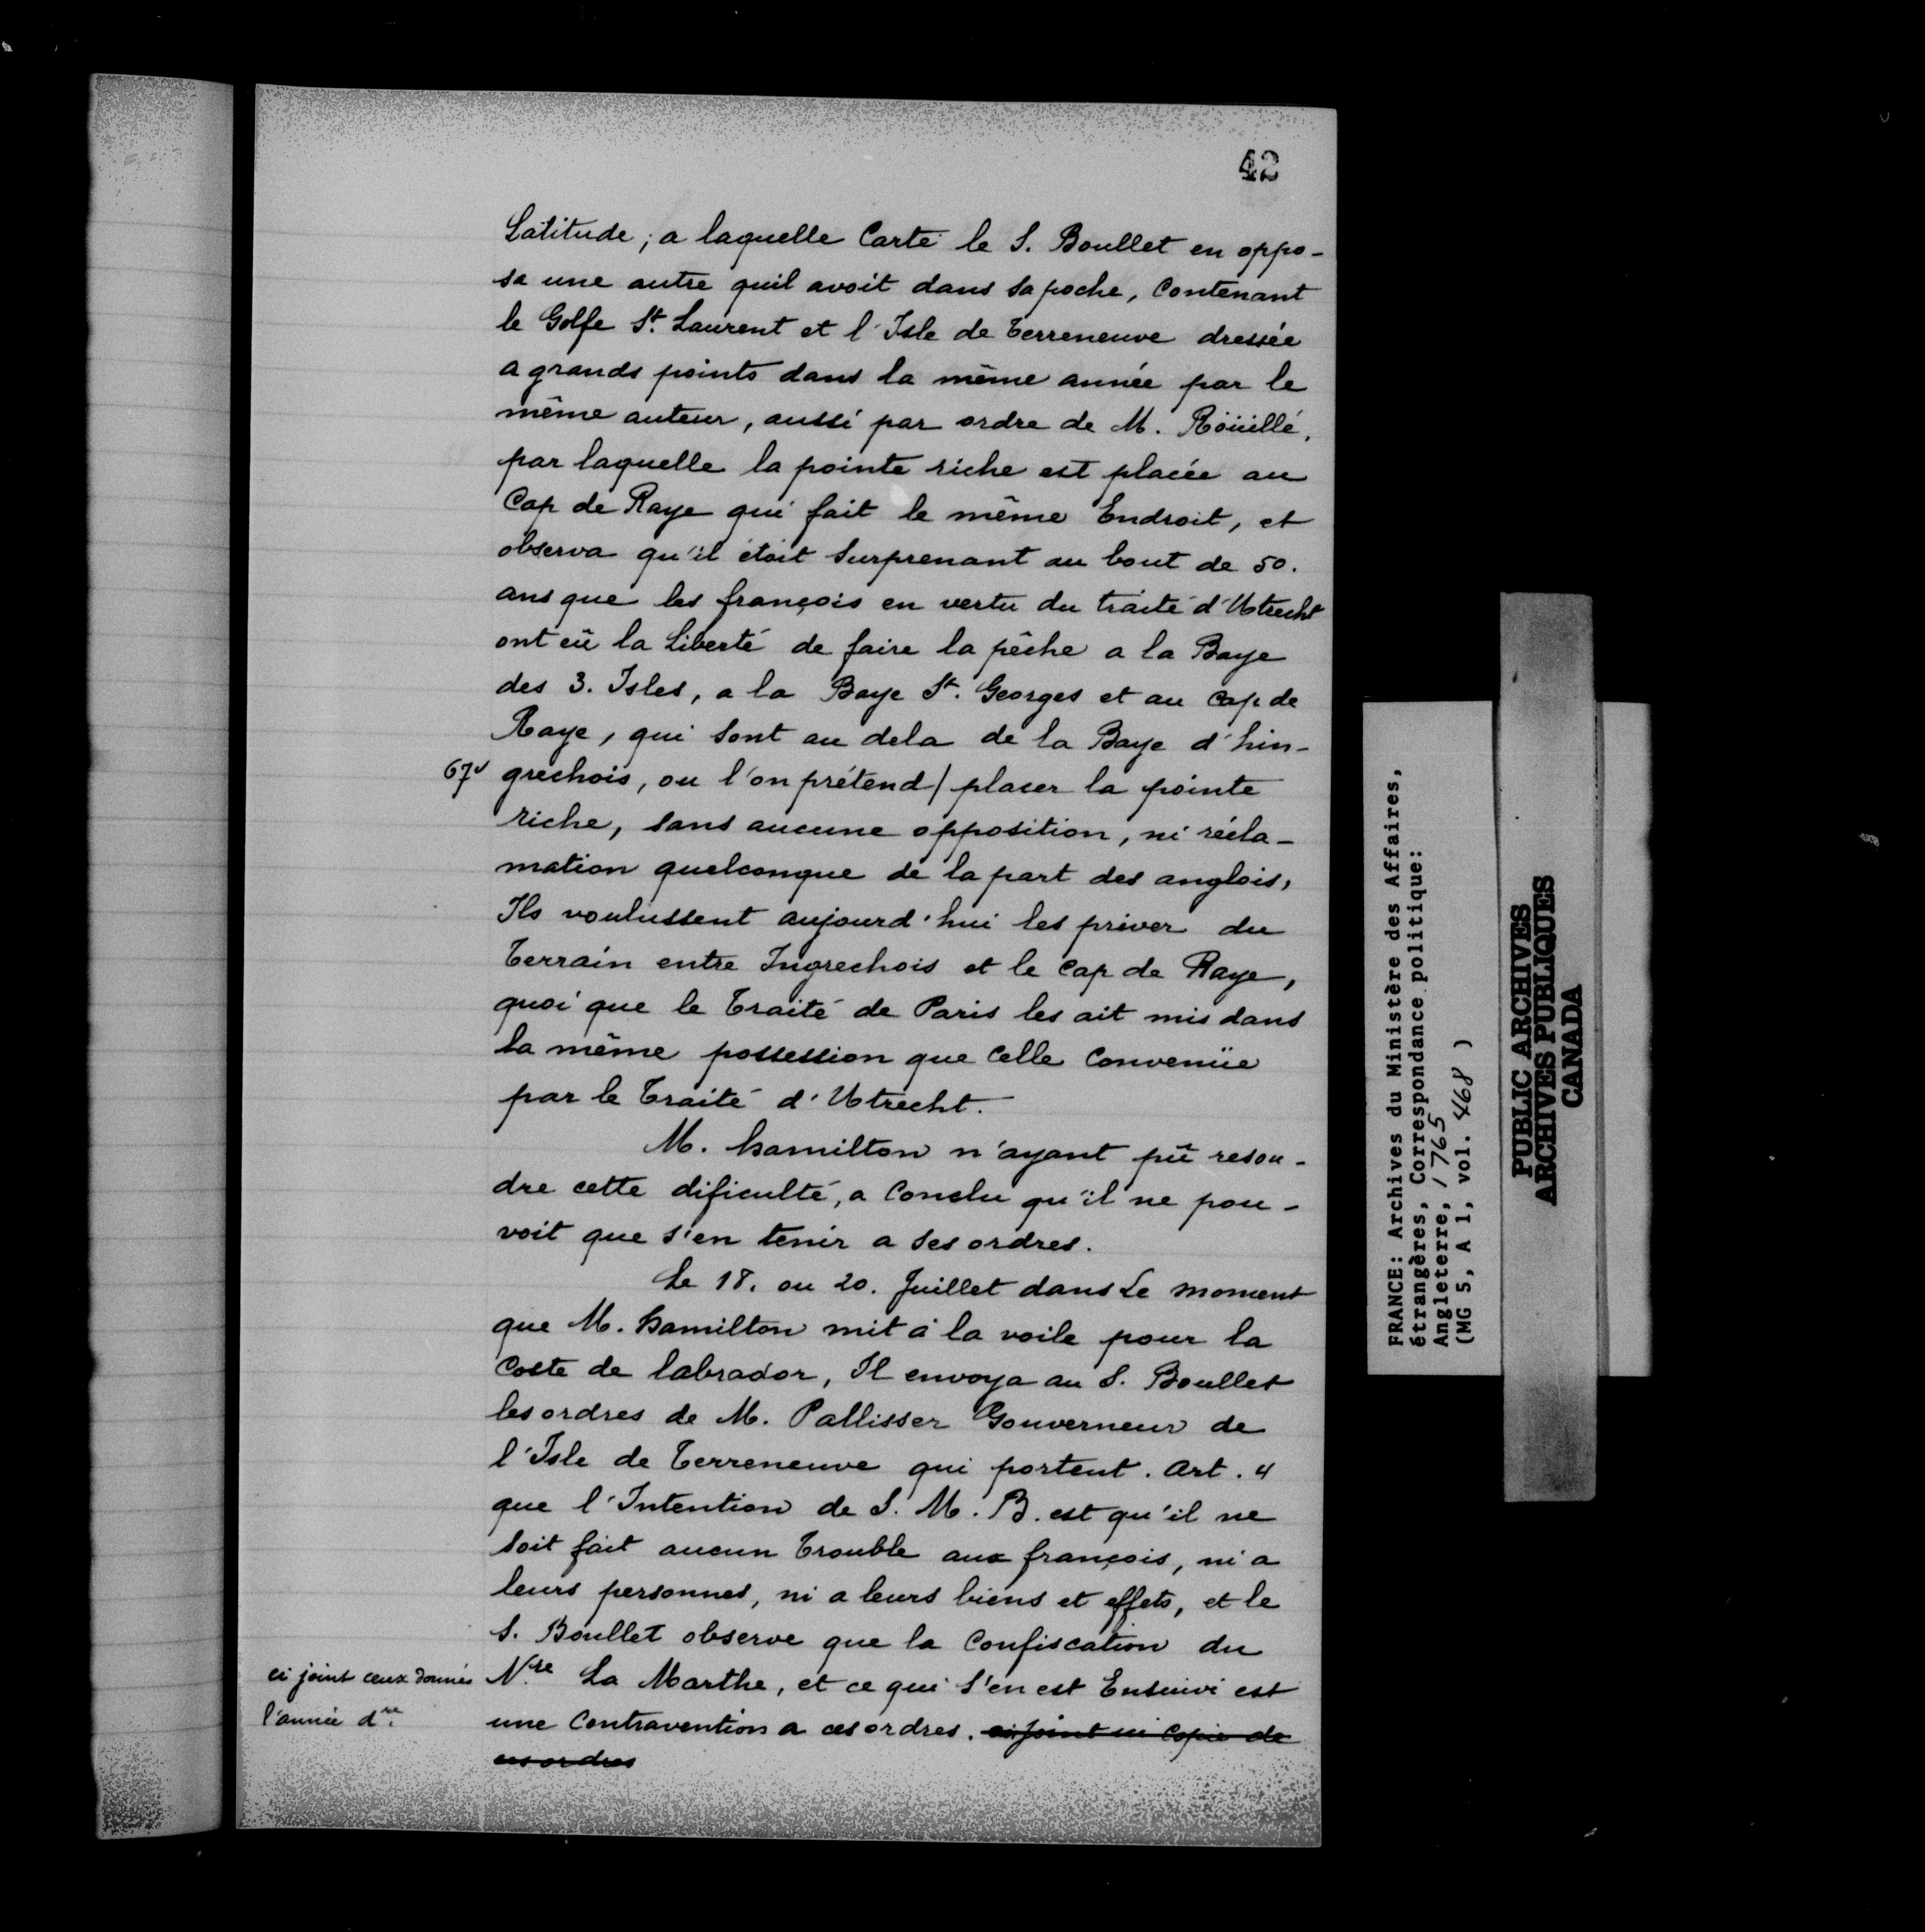 42
Latitude, a laquelle Carte le S. Boullet en oppo-
sa une autre quil avoit dans sa poche, Contenant
le Golfe St. Laurent et l'Isle de Terreneuve dressée
a grands points dans la même année par le
même auteur, aussi par ordre de M. Röüillé,
par laquelle la pointe riche est placée au
Cap de Raye qui fait le même Endroit, et
observa qu'il étoit Surprenant au bout de 50.
ans que les françois en vertu du traité d'Utrecht
ont eû la Liberté de faire la pêche a la Baye
des 3. Isles, a la Baye St. Georges et au Cap de
Raye, qui Sont au dela de la Baye d'hin-
67v grechois, ou l'on prétend/ placer la pointe
riche, sans aucune opposition, ni récla-
mation quelconque de la part des anglois,
Ils voulussent aujourd'hui les priver du
Terrain entre Ingrechois et le Cap de Raye,
quoi que le Traité de Paris les ait mis dans
la même possession que Celle Convenüe
par le Traité d'Utrecht.
M. hamilton n'ayant pû resou-
dre cette dificulté, a Conclu qu'il ne pou-
voit que s'en tenir a ses ordres.
Le 18. ou 20. Juillet dans Le moment
que M. hamilton mit à la voile pour la
Coste de labrador, Il envoya au S. Boullet
les ordres de M. Pallisser Gouverneur de
l'Isle de Terreneuve qui portent. Art. 4
que l'Intention de S. M. B. est qu'il ne
soit fait aucun Trouble aux françois, ni a
leurs personnes, ni a leurs biens et effets, et le
S. Boullet observe que la Confiscation du
Nre. La Marthe, et ce qui S'en est Ensuivi est
une Contravention a ces ordres. ci joint ici Copie de
ces ordres
ci joint ceux donnés
l'année dre.
FRANCE: Archives du Ministère des Affaires,
étrangères, Correspondance politique:
Angleterre, 1765
(MG 5, A 1, vol. 468 )
PUBLIC ARCHIVES
ARCHIVES PUBLIQUES
CANADA